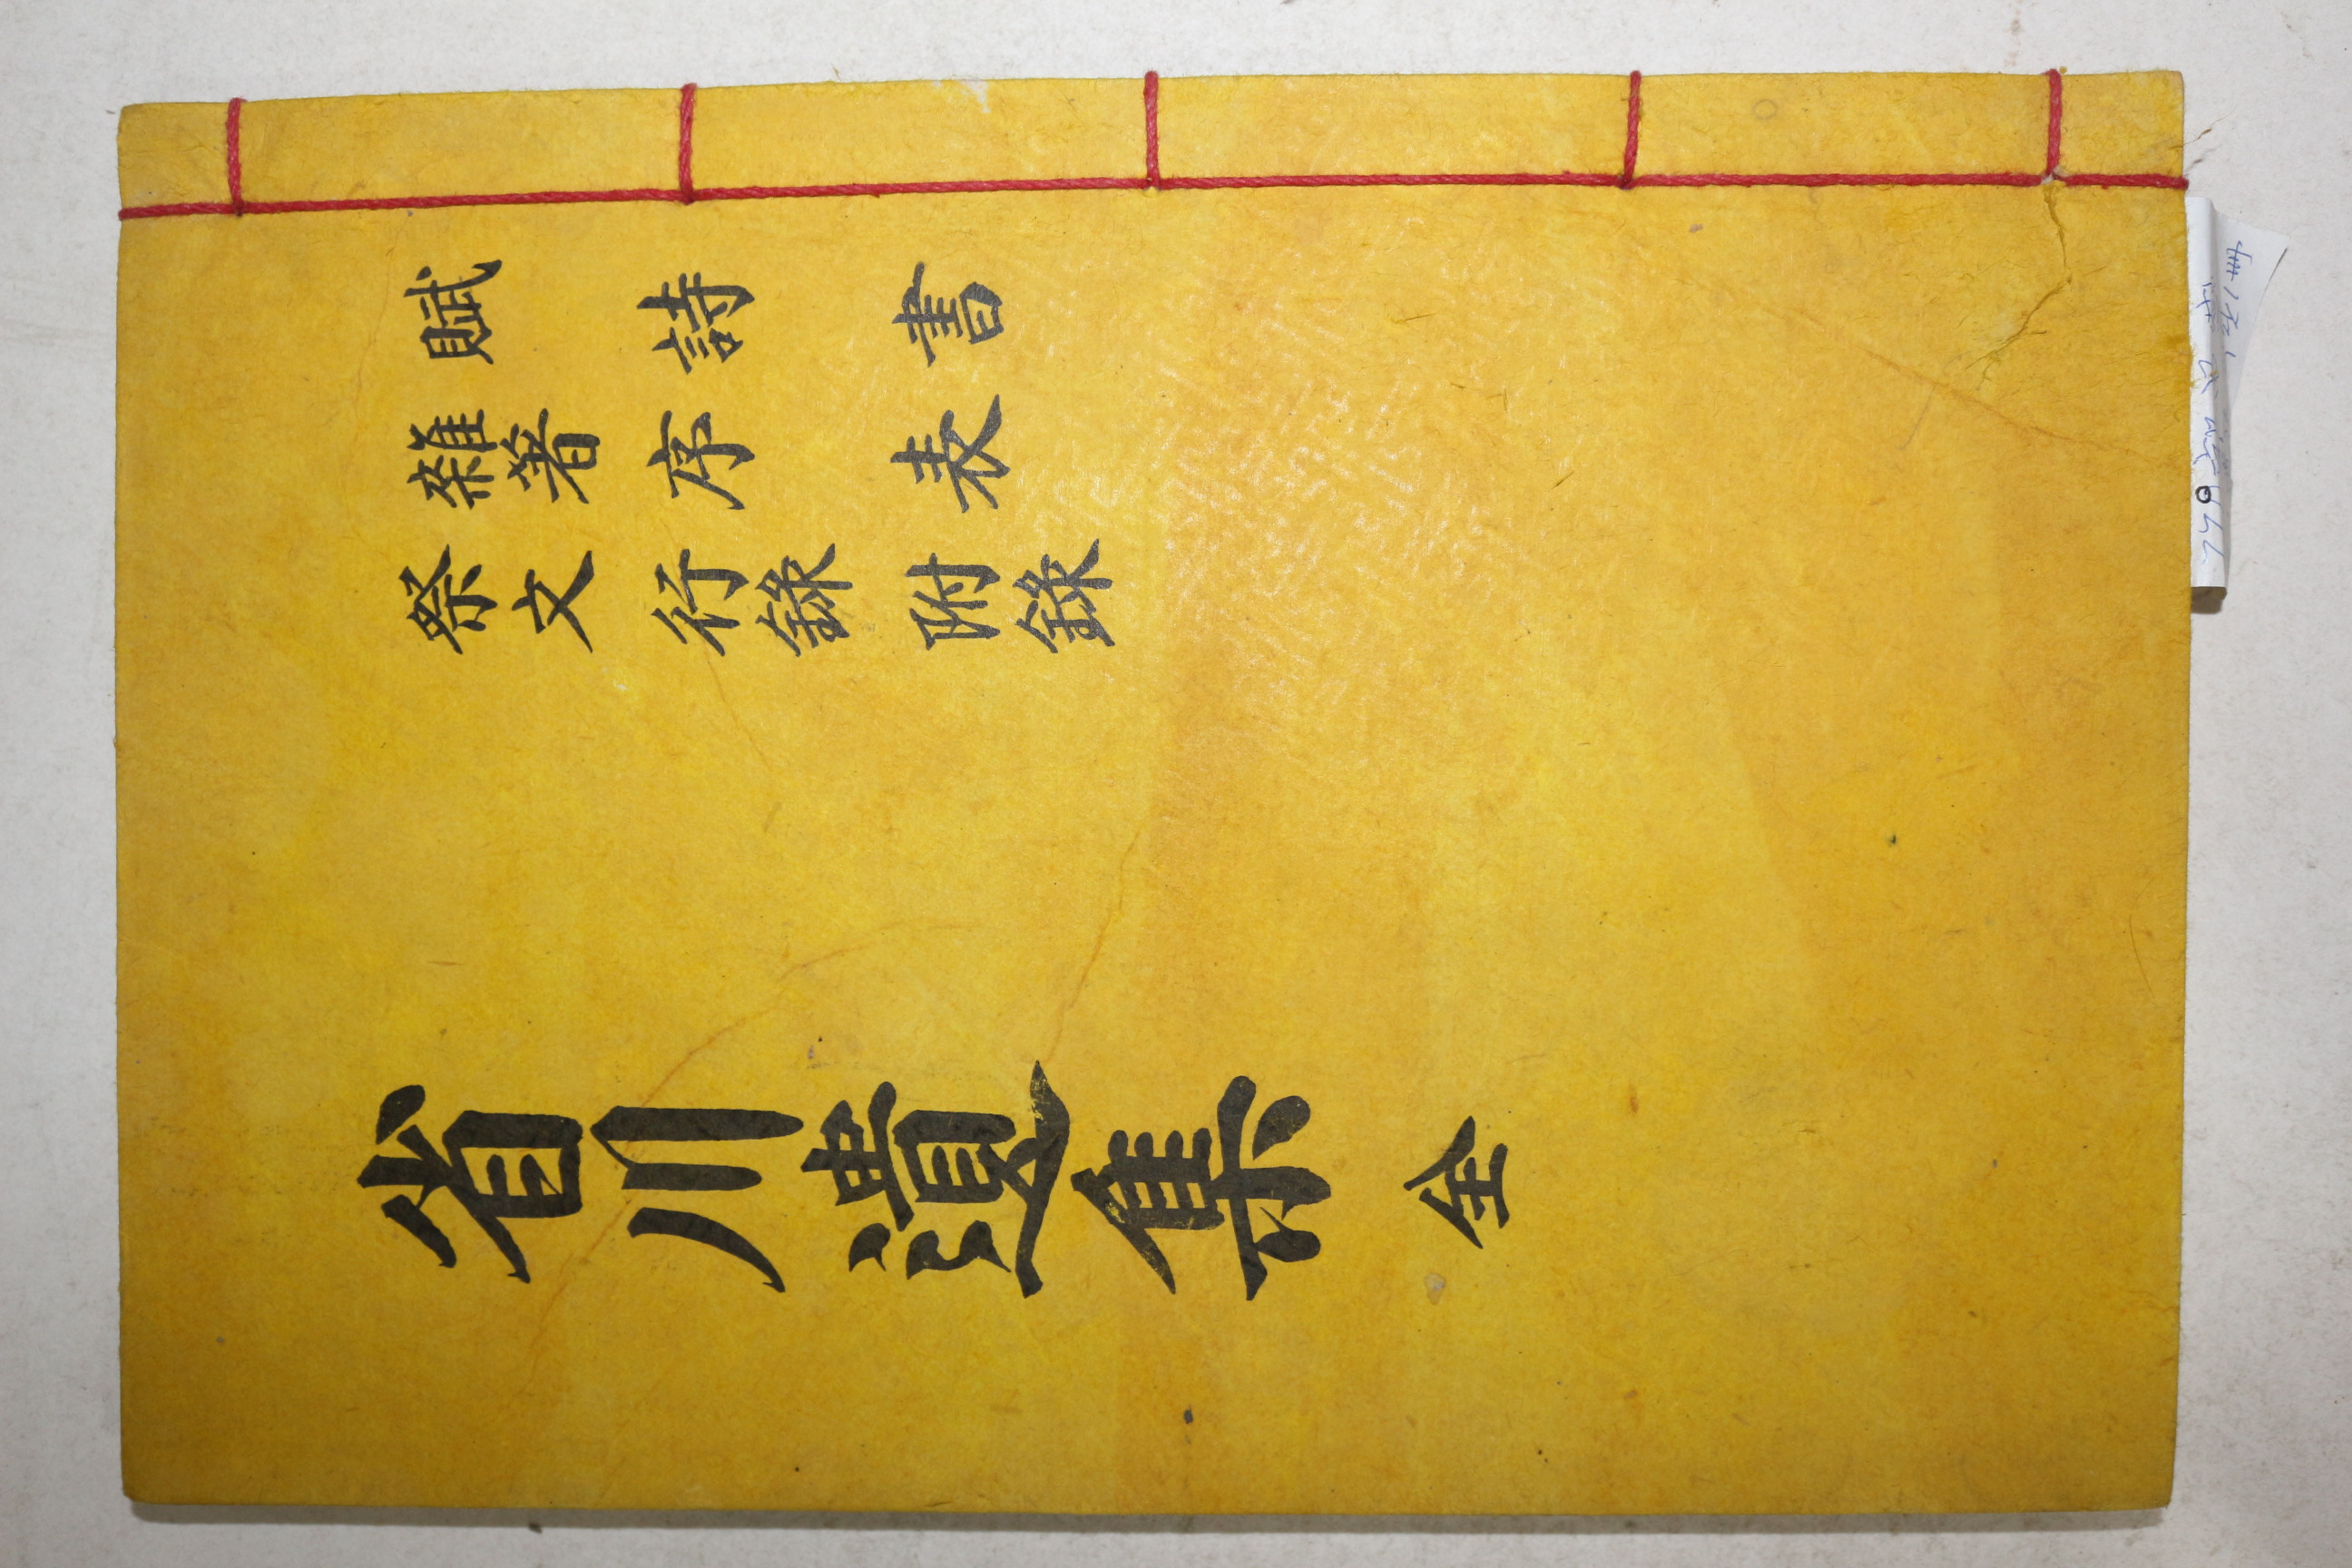 賦 詩 書
雜著 序 表
祭文 行錄 附錄
省川遺集 全